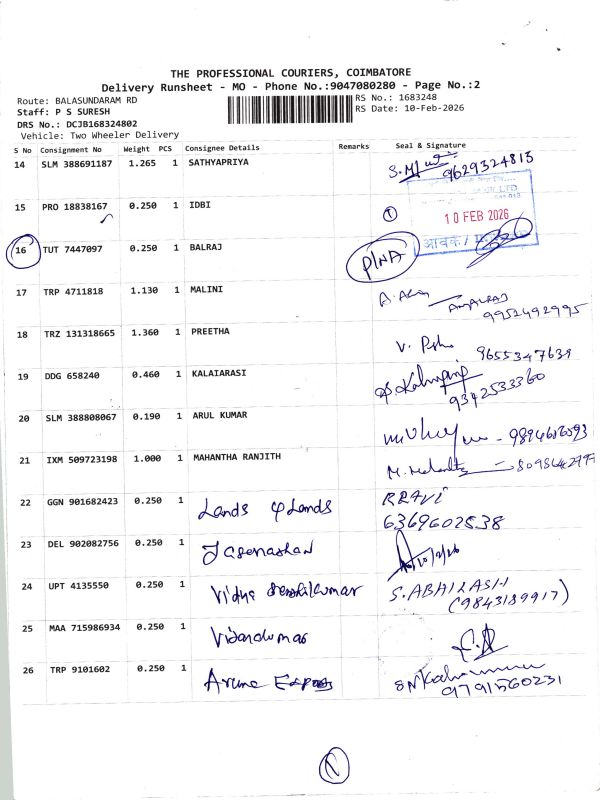 THE PROFESSIONAL COURIERS, COIMBATORE
Delivery Runsheet - MO - Phone No.:9047080280 - Page No.:2
Route: BALASUNDARAM RD
RS No.: 1683248
Staff: P S SURESH
RS Date: 10-Feb-2026
DRS No.: DCJB168324802
Vehicle: Two Wheeler Delivery
S No Consignment No Weight PCS Consignee Details Remarks Seal & Signature
14 SLM 388691187 1.265 1 SATHYAPRIYA 9629324813
15 PRO 18838167 0.250 1 IDBI
10 FEB 2026
16 TUT 7447097 0.250 1 BALRAJ PINA
17 TRP 4711818 1.130 1 MALINI
9952492995
18 TRZ 131318665 1.360 1 PREETHA
9655347639
19 DDG 658240 0.460 1 KALAIARASI
9342533360
20 SLM 388808067 0.190 1 ARUL KUMAR
21 IXM 509723198 1.000 1 MAHANTHA RANJITH
22 GGN 901682423 0.250 1 Lands & Lands RRAVI
6369602538
23 DEL 902082756 0.250 1
24 UPT 4135550 0.250 1 Vidya S.ABHILASH
(9843189917)
25 MAA 715986934 0.250 1
26 TRP 9101602 0.250 1
9791560231